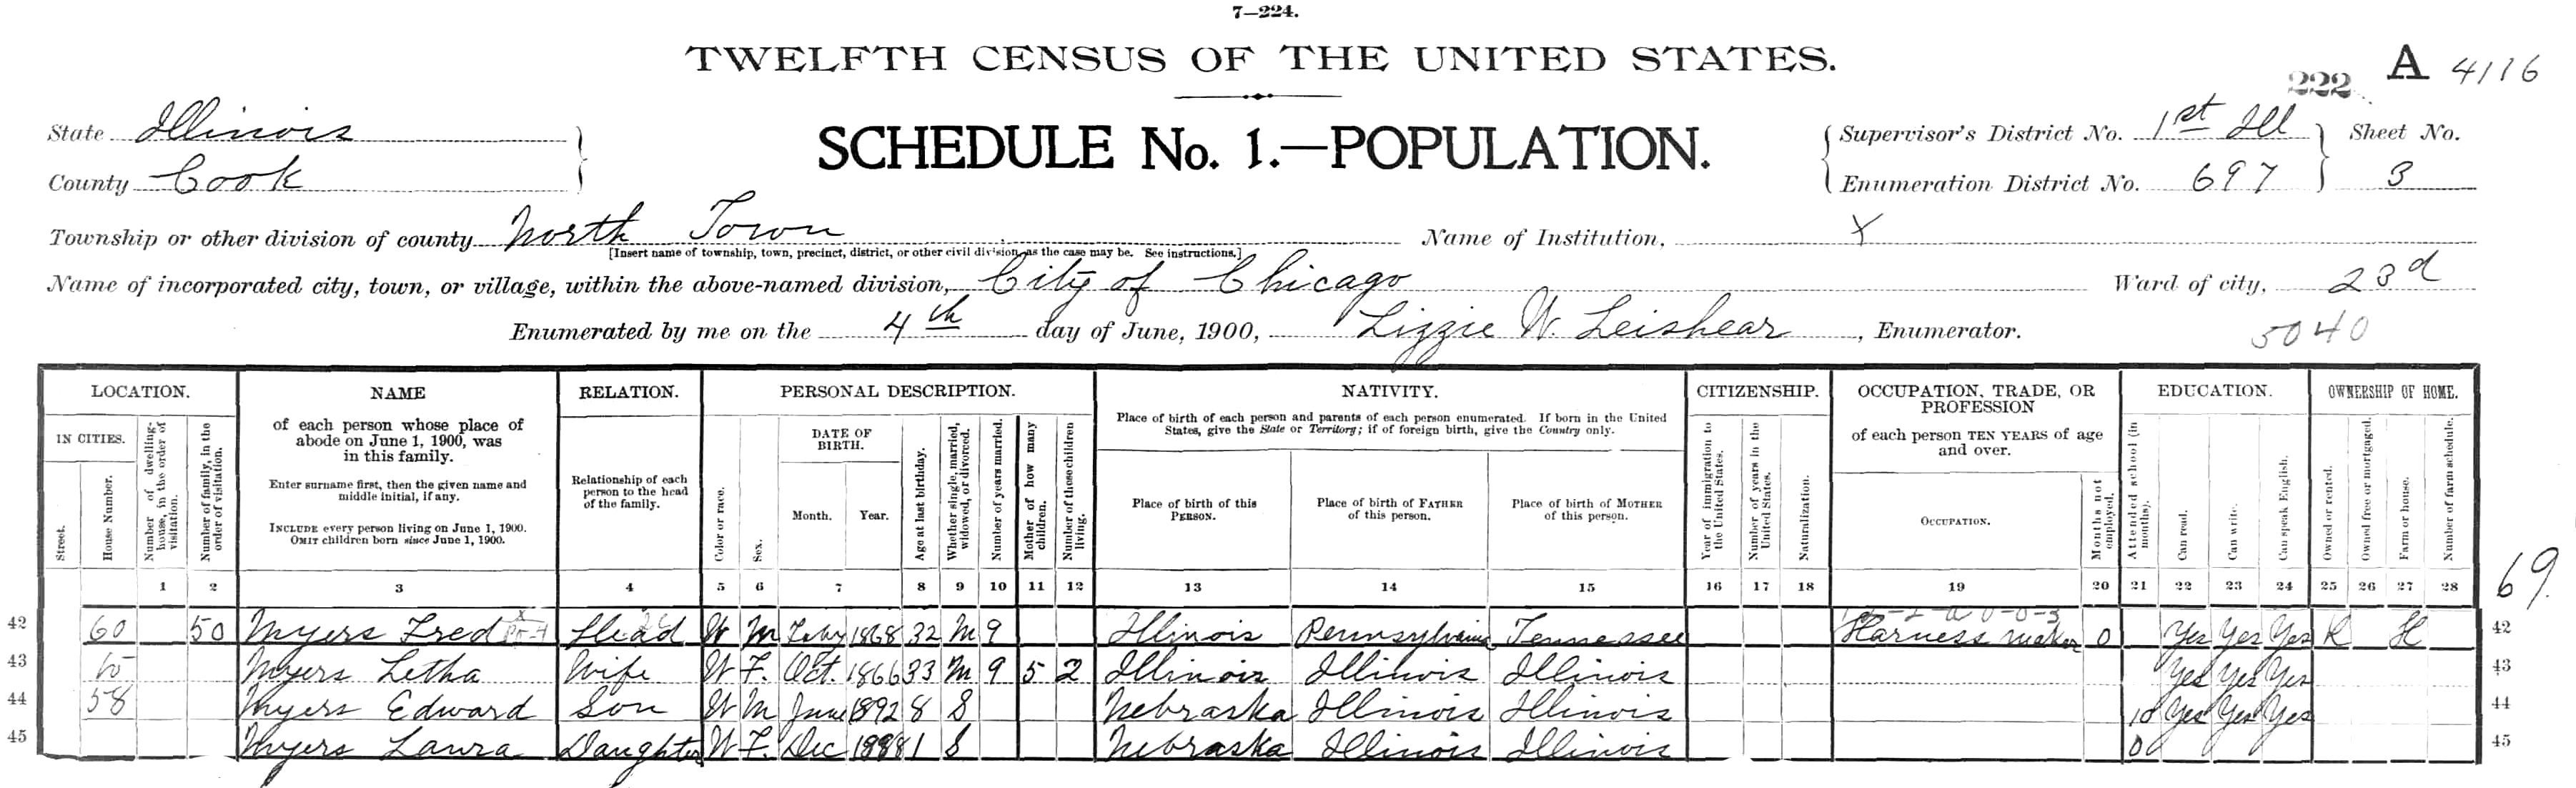 7—224.
TWELFTH CENSUS OF THE UNITED STATES.
222 A 4116
State Illinois
County Cook
SCHEDULE No. 1.—POPULATION.
Supervisor's District No. 1st Ill
Enumeration District No. 697
Sheet No.
3
Township or other division of county North Town
[Insert name of township, town, precinct, district, or other civil division, as the case may be. See instructions.]
Name of Institution, X
Name of incorporated city, town, or village, within the above-named division, City of Chicago
Ward of city, 23d
Enumerated by me on the 4th day of June, 1900, Lizzie W. Leishear, Enumerator.
5040
LOCATION.
IN CITIES.
Street.
House Number.
Number of dwelling-house, in the order of visitation.
Number of family, in the order of visitation.
NAME
of each person whose place of abode on June 1, 1900, was in this family.
Enter surname first, then the given name and middle initial, if any.
INCLUDE every person living on June 1, 1900.
OMIT children born since June 1, 1900.
RELATION.
Relationship of each person to the head of the family.
PERSONAL DESCRIPTION.
Color or race.
Sex.
DATE OF BIRTH.
Month. Year.
Age at last birthday.
Whether single, married, widowed, or divorced.
Number of years married.
Mother of how many children.
Number of these children living.
NATIVITY.
Place of birth of each person and parents of each person enumerated. If born in the United States, give the State or Territory; if of foreign birth, give the Country only.
Place of birth of this PERSON.
Place of birth of FATHER of this person.
Place of birth of MOTHER of this person.
CITIZENSHIP.
Year of immigration to the United States.
Number of years in the United States.
Naturalization.
OCCUPATION, TRADE, OR PROFESSION
of each person TEN YEARS of age and over.
OCCUPATION.
Months not employed.
EDUCATION.
Attended school (in months).
Can read.
Can write.
Can speak English.
OWNERSHIP OF HOME.
Owned or rented.
Owned free or mortgaged.
Farm or house.
Number of farm schedule.
69.
1 2 3 4 5 6 7 8 9 10 11 12 13 14 15 16 17 18 19 20 21 22 23 24 25 26 27 28
42 60 50 Myers Fred Head W M Feby 1868 32 M 9 Illinois Pennsylvania Tennessee Harness maker 0 Yes Yes Yes R H 42
43 to Myers Letha Wife W F. Oct. 1866 33 M 9 5 2 Illinois Illinois Illinois Yes Yes Yes 43
44 58 Myers Edward Son W M June 1892 8 S Nebraska Illinois Illinois 10 Yes Yes Yes 44
45 Myers Laura Daughter W F. Dec 1898 1 S Nebraska Illinois Illinois 0 45